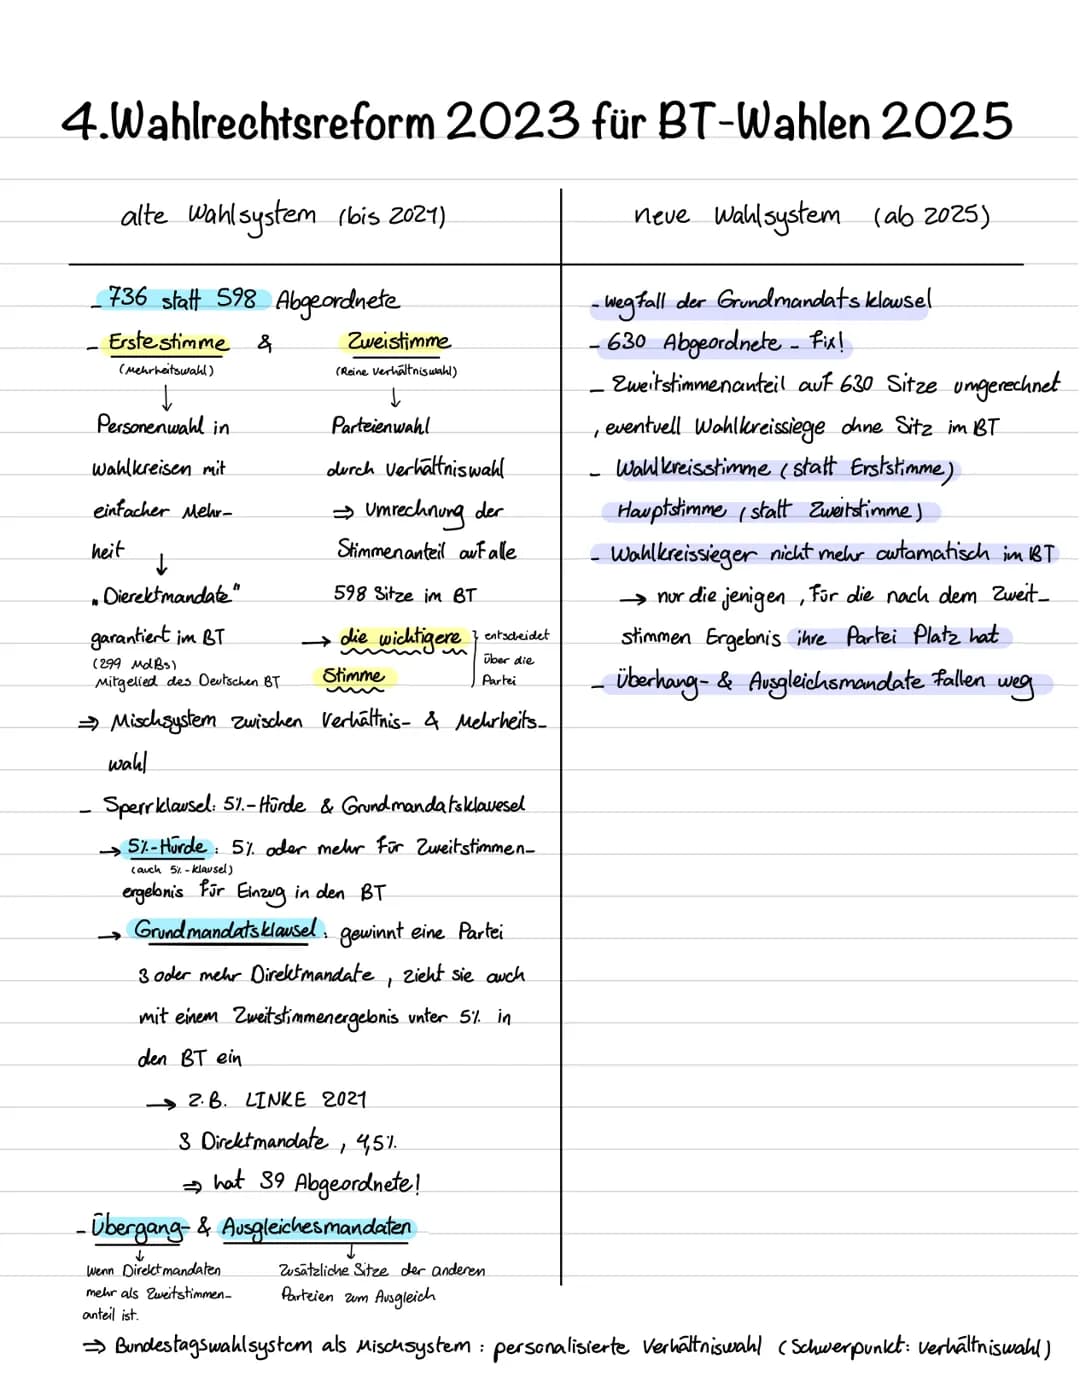 4.Wahlrechtsreform 2023 für BT-Wahlen 2025
alte Wahlsystem (bis 2021)
- 736 statt 598 Abgeordnete
- Erstestimme & Zweistimme
(Mehrheitswahl) (Reine Verhältniswahl)
↓ ↓
Personenwahl in Parteienwahl
Wahlkreisen mit durch Verhältniswahl
einfacher Mehr- ⇒ Umrechnung der
heit Stimmenanteil auf alle
↓
"Dierektmandate" 598 Sitze im BT
garantiert im BT → die wichtigere } entscheidet
(299 MdBs) über die
Mitgelied des Deutschen BT Stimme Partei
⇒ Mischsystem zwischen Verhältnis- & Mehrheits-
wahl
- Sperrklausel: 5%-Hürde & Grundmandatsklauesel
→ 5%-Hürde: 5% oder mehr für Zweitstimmen-
(auch 5%-klausel)
ergebnis für Einzug in den BT
→ Grundmandatsklausel: gewinnt eine Partei
3 oder mehr Direktmandate, zieht sie auch
mit einem Zweitstimmenergebnis unter 5% in
den BT ein
→ z.B. LINKE 2021
3 Direktmandate, 4,5%.
⇒ hat 39 Abgeordnete!
- Übergang- & Ausgleichesmandaten
↓ ↓
wenn Direktmandaten Zusätzliche Sitze der anderen
mehr als Zweitstimmen- Parteien zum Ausgleich
anteil ist.
⇒ Bundestagswahlsystem als Mischsystem: personalisierte Verhältniswahl (Schwerpunkt: Verhältniswahl)
neue Wahlsystem (ab 2025)
- Wegfall der Grundmandatsklausel
- 630 Abgeordnete - Fix!
- Zweitstimmenanteil auf 630 Sitze umgerechnet
, eventuell Wahlkreissiege ohne Sitz im BT
- Wahlkreisstimme (statt Erststimme)
Hauptstimme (statt Zweitstimme)
- Wahlkreissieger nicht mehr automatisch im BT
→ nur die jenigen, für die nach dem Zweit-
stimmen Ergebnis ihre Partei Platz hat
- Überhang- & Ausgleichsmandate fallen weg